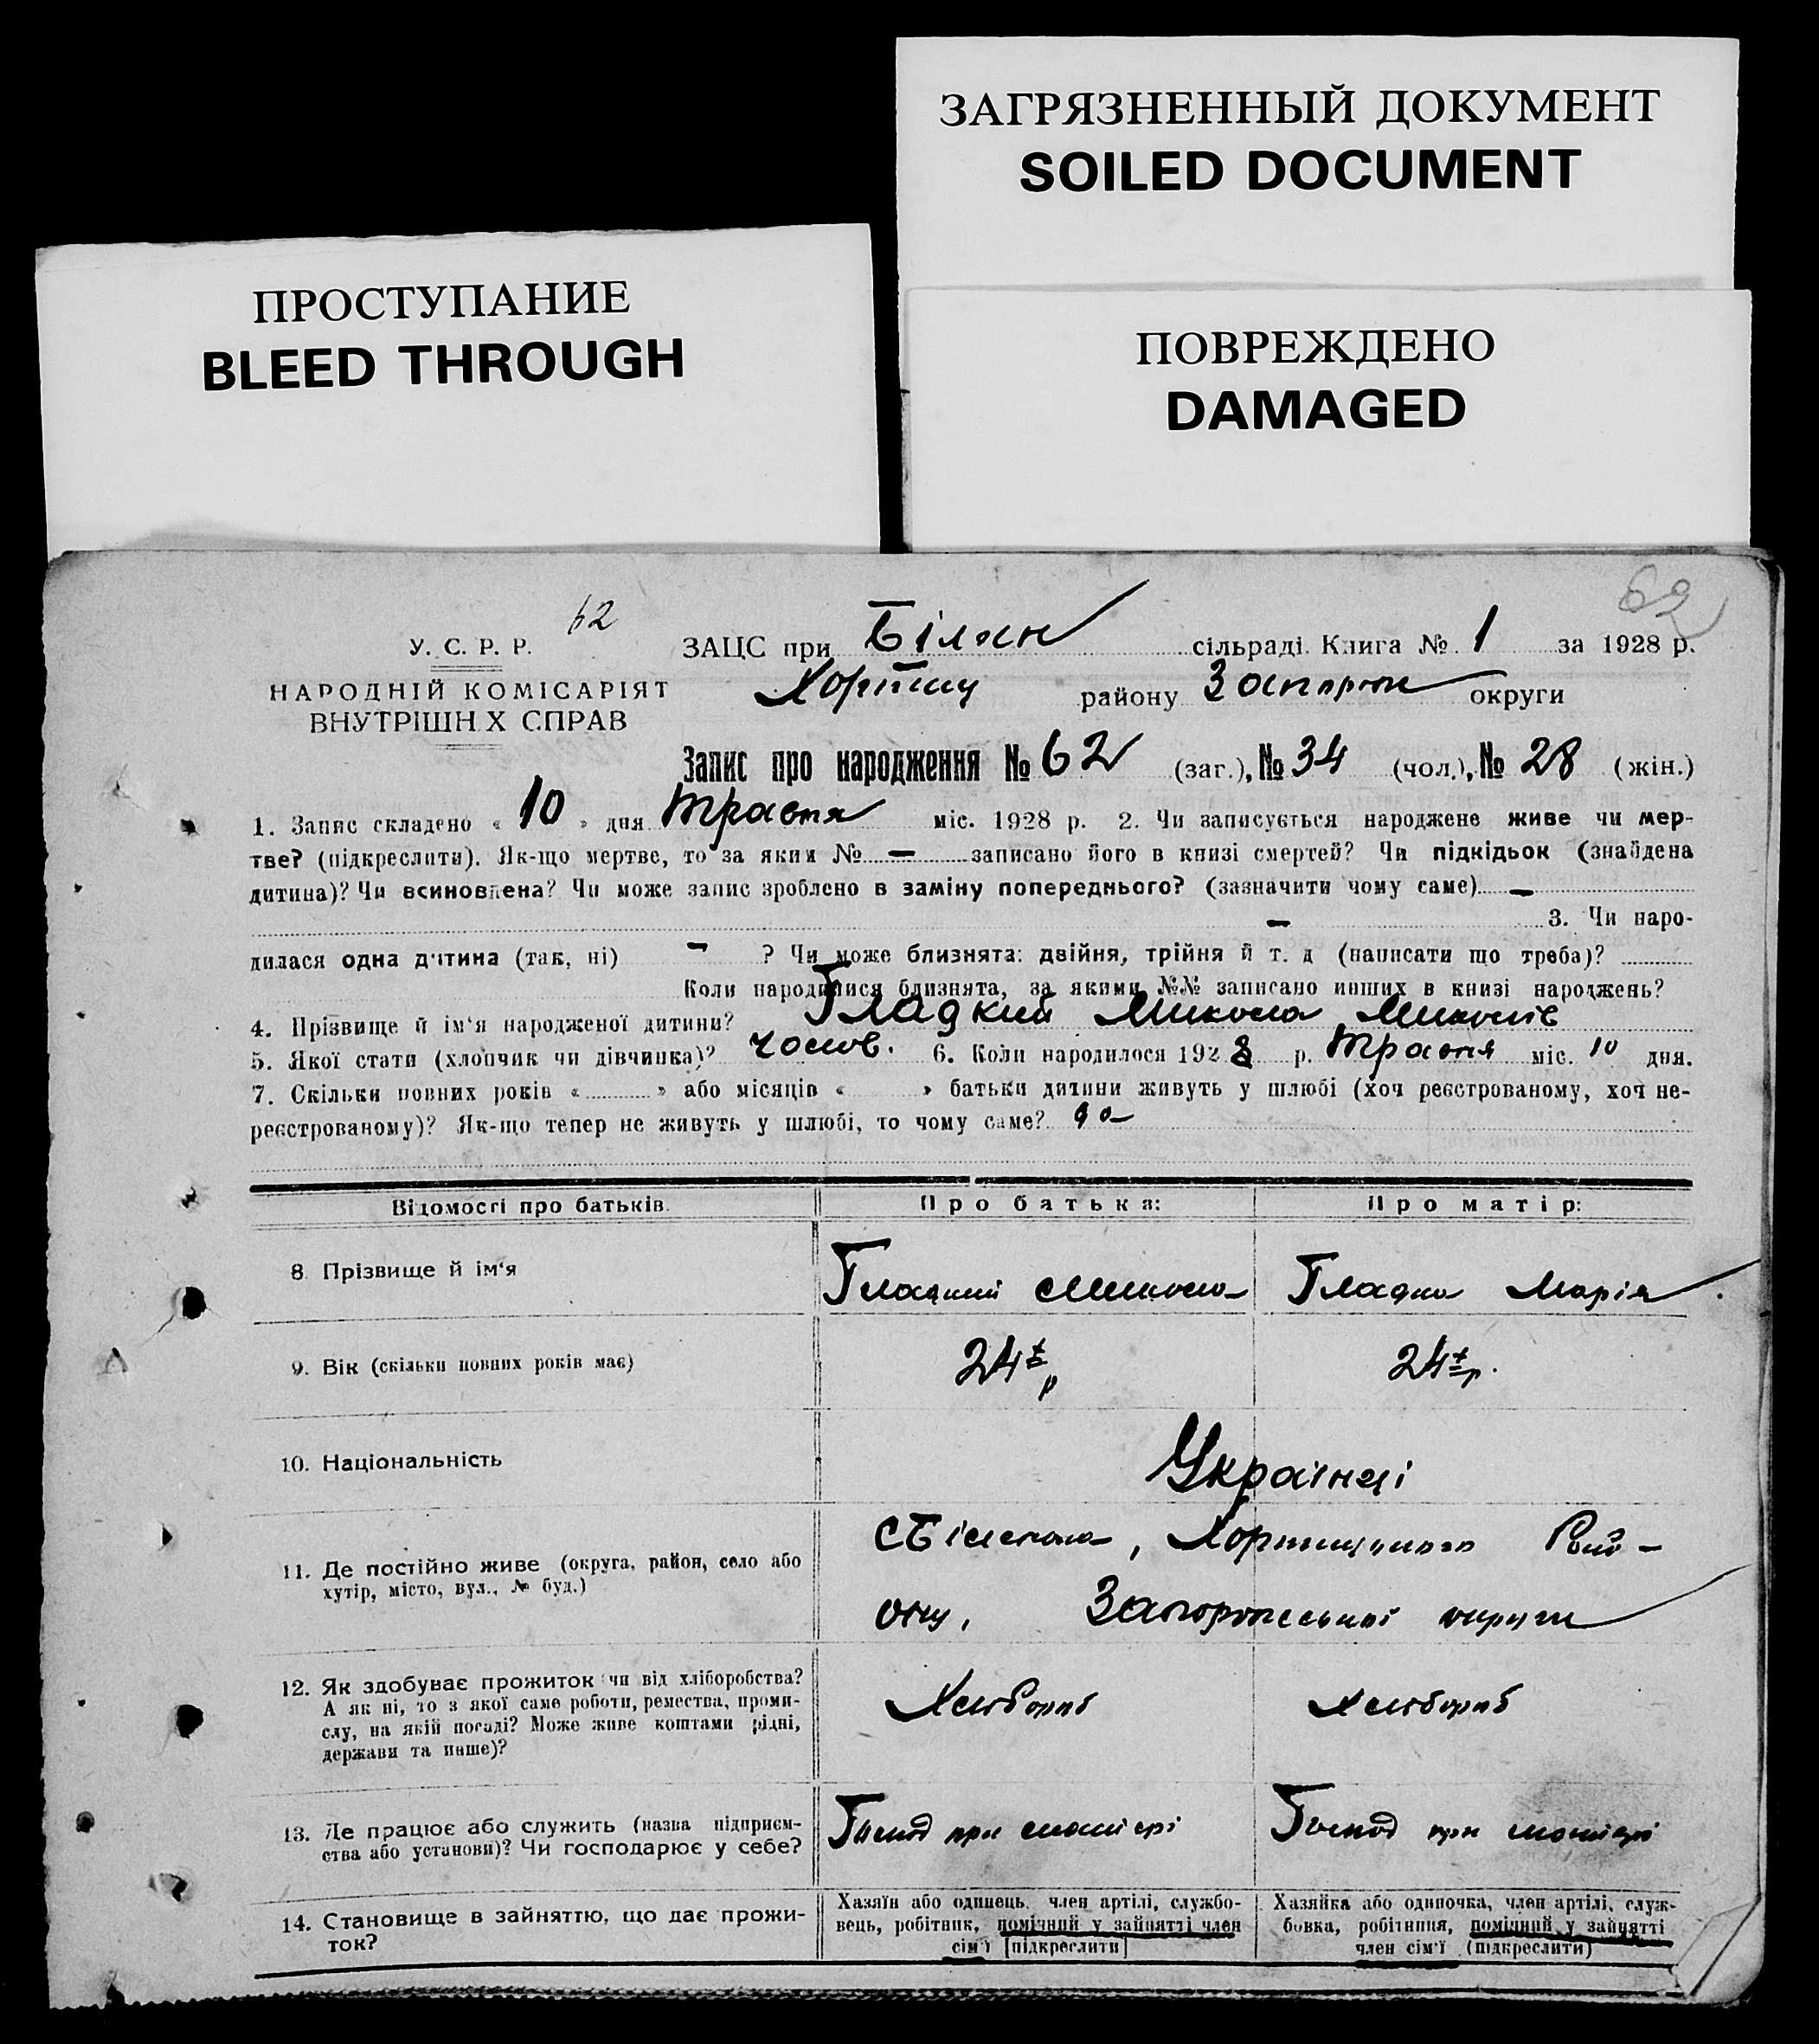 ЗАГРЯЗНЕННЫЙ ДОКУМЕНТ
SOILED DOCUMENT
ПРОСТУПАНИЕ
BLEED THROUGH
ПОВРЕЖДЕНО
DAMAGED
62
62
У. С. Р. Р.
НАРОДНІЙ КОМІСАРІЯТ
ВНУТРІШН Х СПРАВ
ЗАЦС при Білян сільраді. Книга № 1 за 1928 р.
Хортиц району Запорож округи
Запис про народження № 62 (заг.), № 34 (чол.), № 28 (жін.)
1. Запис складено « 10 » дня травня міс. 1928 р. 2. Чи записується народжене живе чи мер-
тве? (підкреслити). Як-що мертве, то за яким № — записано його в книзі смертей? Чи підкідьок (знайдена
дитина)? Чи всиновлена? Чи може запис зроблено в заміну попереднього? (зазначити чому саме) —
— 3. Чи наро-
дилася одна дитина (так, ні) — ? Чи може близнята: двійня, трійня й т. д (написати що треба)?
Коли народилися близнята, за якими №№ записано инших в книзі народжень?
4. Прізвище й ім‘я народженої дитини? Гладкий Микола Миколів
5. Якої стати (хлопчик чи дівчинка)? чолов. 6. Коли народилося 1928 р. травня міс. 10 дня.
7. Скільки повних років « » або місяців « » батьки дитини живуть у шлюбі (хоч реєстрованому, хоч не-
реєстрованому)? Як-що тепер не живуть у шлюбі, то чому саме?
Відомості про батьків.
Про батька:
Про матір:
8 Прізвище й ім‘я
Гладкий Микола
Гладка Марія
9. Вік (скільки повних років має)
24 р
24 р.
10. Національність
Українці
11. Де постійно живе (округа, район, село або
хутір, місто, вул., № буд.)
Хортицького Рай-
ону, Запорожської округи
12. Як здобуває прожиток чи від хліборобства?
А як ні, то з якої саме роботи, ремества, проми-
слу, на якій посаді? Може живе коштами рідні,
держави та инше)?
Хлібороб
Хлібороб
13. Де працює або служить (назва підприєм-
ства або установи)? Чи господарює у себе?
Господ при матері
Господ при матері
14. Становище в зайняттю, що дає прожи-
ток?
Хазяїн або одинець, член артілі, службо-
вець, робітник, помічний у зайнятті член
сім‘ї [підкреслити]
Хазяйка або одиночка, член артілі, служ-
бовка, робітниця, помічний у зайнятті
член сім‘ї (підкреслити)